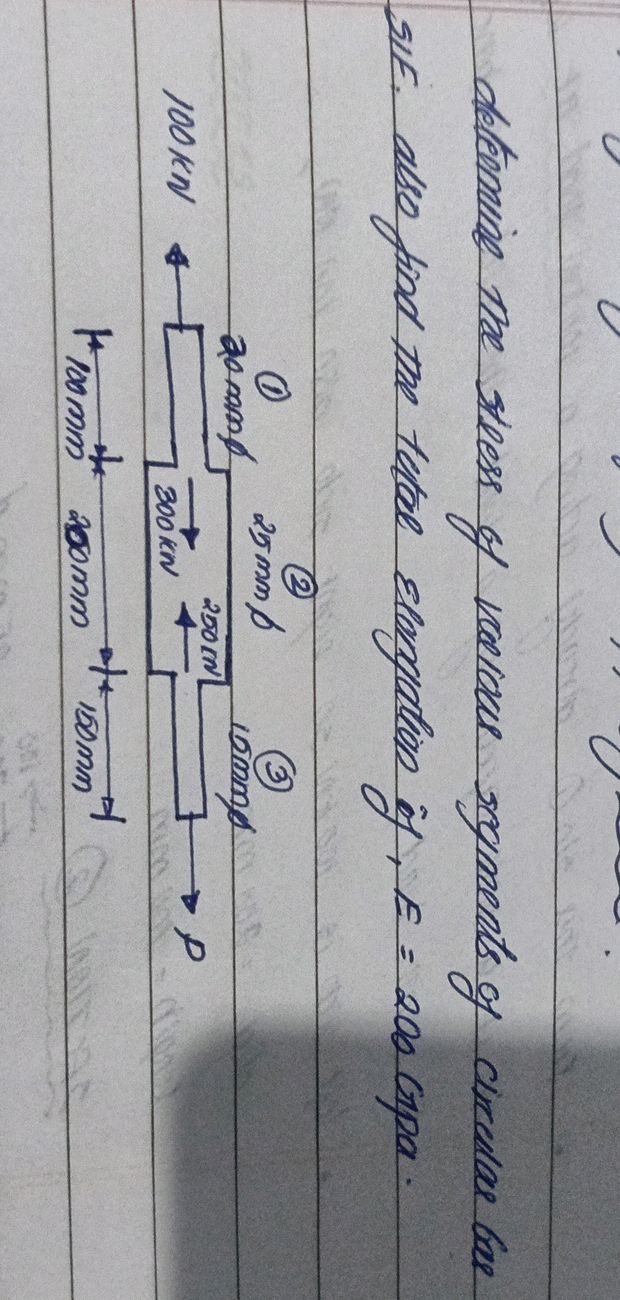 determine the stress of various segments of circular bar
SIF. also find the total elongation if, E = 200 Gpa.
① ② ③
20 mm ϕ 25 mm ϕ 15 mm ϕ
100 KN 300 KN 250 KN P
100 mm 200 mm 150 mm